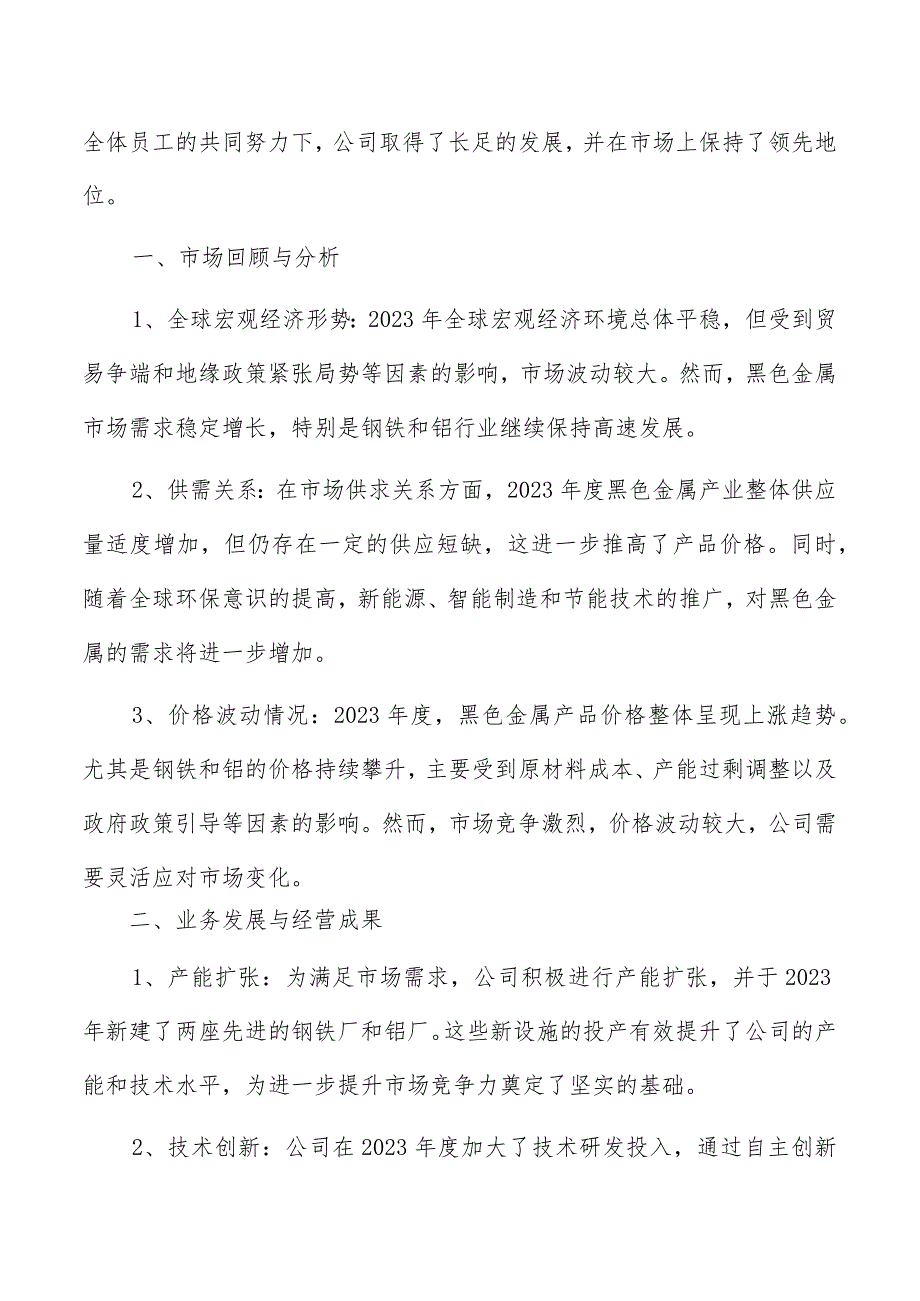 全体员工的共同努力下，公司取得了长足的发展，并在市场上保持了领先地
位。
一、市场回顾与分析
1、全球宏观经济形势：2023 年全球宏观经济环境总体平稳，但受到贸
易争端和地缘政策紧张局势等因素的影响，市场波动较大。然而，黑色金属
市场需求稳定增长，特别是钢铁和铝行业继续保持高速发展。
2、供需关系：在市场供求关系方面，2023 年度黑色金属产业整体供应
量适度增加，但仍存在一定的供应短缺，这进一步推高了产品价格。同时，
随着全球环保意识的提高，新能源、智能制造和节能技术的推广，对黑色金
属的需求将进一步增加。
3、价格波动情况：2023 年度，黑色金属产品价格整体呈现上涨趋势。
尤其是钢铁和铝的价格持续攀升，主要受到原材料成本、产能过剩调整以及
政府政策引导等因素的影响。然而，市场竞争激烈，价格波动较大，公司需
要灵活应对市场变化。
二、业务发展与经营成果
1、产能扩张：为满足市场需求，公司积极进行产能扩张，并于 2023
年新建了两座先进的钢铁厂和铝厂。这些新设施的投产有效提升了公司的产
能和技术水平，为进一步提升市场竞争力奠定了坚实的基础。
2、技术创新：公司在 2023 年度加大了技术研发投入，通过自主创新